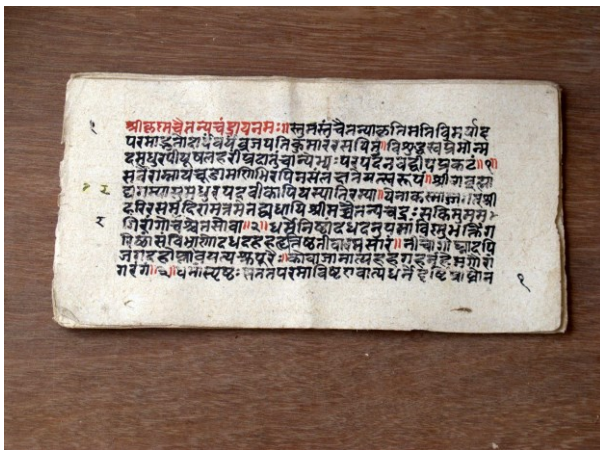 श्रीकृष्णचैतन्यचंद्रायनमः॥स्तुमस्तंचैतन्याकृतिमतिविमर्याद
परमाद्भुतौदार्यंवर्यंव्रजपतिकुमारंरसयितुं॥विशुद्धस्वप्रेमोन्म
दमधुरपीयूषलहरींप्रदातुंचान्येभ्यःपरपदनवद्वीपप्रकटं॥१॥
सर्वैराम्नायचूडामणिभिरपिनसंलक्ष्यतेयत्स्वरूपं॥श्रीशब्रह्मा
द्यगम्यासुमधुरपदवीकापियस्यास्तिरम्या॥येनाकस्माज्जगछ्री
हरिरसमदिरामत्तमेतद्व्यधायिश्रीमच्चैतन्यचंद्रःसकिमुमम
गिरांगोचरश्चेतसोवा॥२॥धर्मेनिष्ठांदधदनुपमांविष्णुभक्तिंग
रिष्ठांसंविभ्राणोदधदहहहृत्तिष्ठतीवाश्मसारं॥नीचोगोघ्नादपि
जगदहोप्लावयत्यश्रुपूरैःकोवाजानात्यहहगहनंहेमगौरां
गरंगं॥३॥धर्मास्पृष्टःसततपरमाविष्टएवात्यधर्मेदृष्टिंप्राप्तोन
१